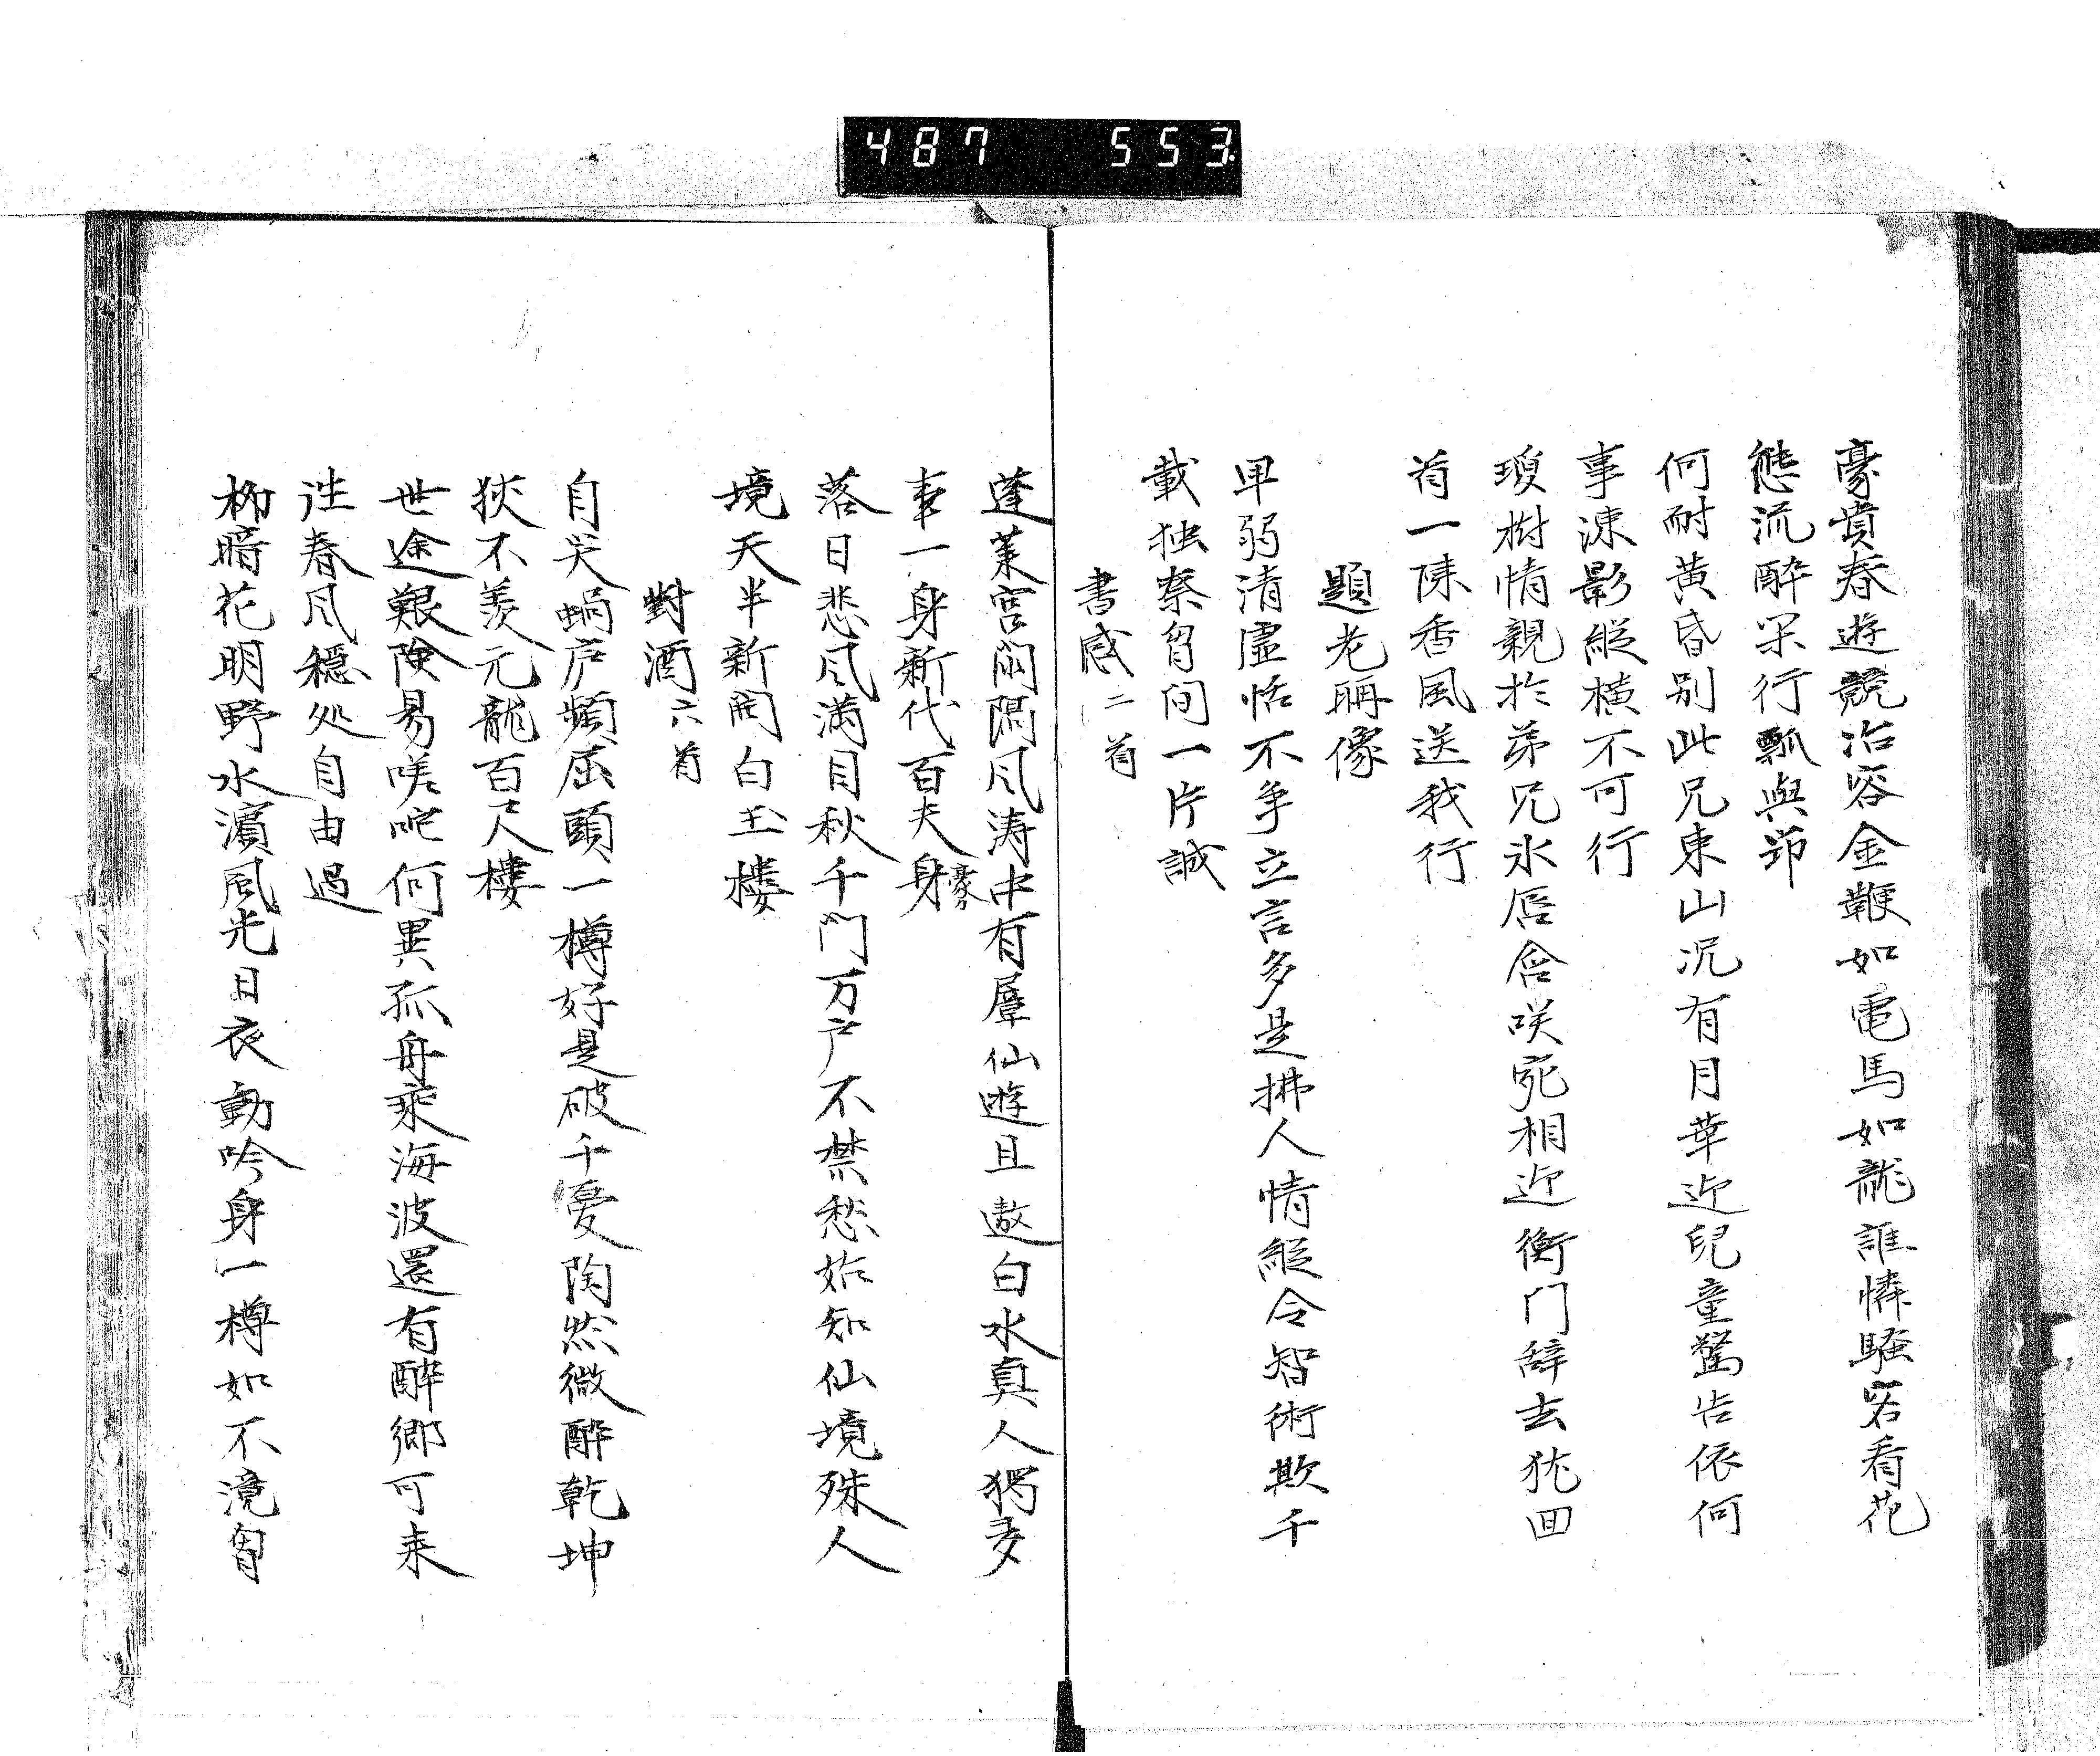 487 553
豪貴春遊競冶容金鞭如電馬如龍誰憐騷客看花
態流酔呆行瓢與笻
何耐黄昏別此兄東山況有月華近皃童驚告依何
事疎影縦横不可行
瓊樹情親於弟兄氷唇含咲宛相迎衡门辞去犹囬
首一陳香風送我行
題老耼像
卑弱清虚恬不争立言多是拂人情縦令智術欺千
載独祭胷间一片誠
書感二首
蓬莱宮闕隔风涛中有羣仙遊且遨白水真人獨多
事一身新代百夫身豪
落日悲风満目秋千门万户不禁愁始知仙境殊人
境天半新開白玉楼
對酒六首
自笑蝸庐頻屈頭一樽好是破千憂陶然微酔乾坤
狭不羡元龍百尺樓
世途艱険易嗟咜何異孤舟乘海波還有酔郷可来
往春风穏処自由過
栁暗花明野水濵風光日夜動吟身一樽如不澆胷